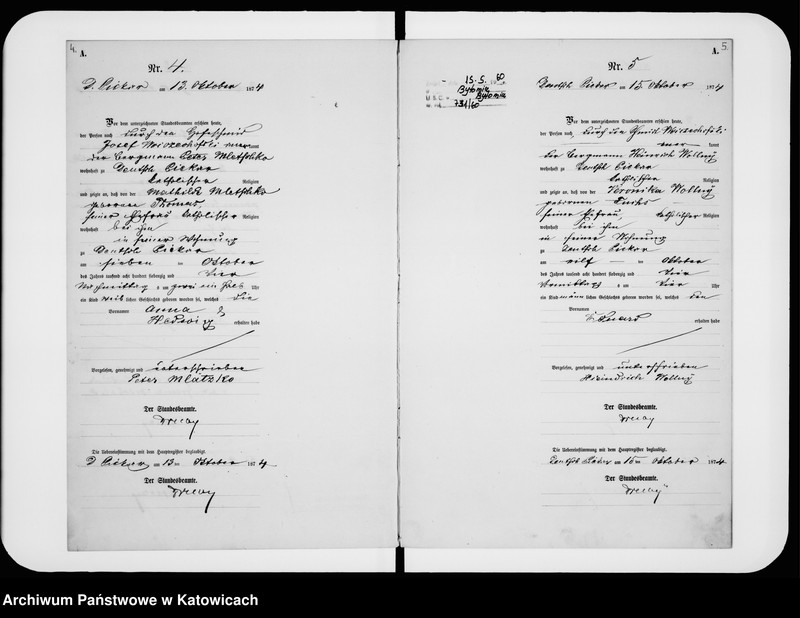 4.
A.
Nr. 4.
D. Piekar am 13. Oktober 1874
Vor dem unterzeichneten Standesbeamten erschien heute,
der Person nach durch den
Josef kannt
der Bergmann Peter Mletzko
wohnhaft zu Deutsch Piekar
katholischer Religion
und zeigte an, daß von der Mathilde Mletzko
geborene Thomas
seiner Ehefrau katholischer Religion
wohnhaft bei ihm
in seiner Wohnung
zu Deutsch Piekar
am sieben ten Oktober
des Jahres tausend acht hundert siebenzig und vier
Nachmittags um zwei ein halb Uhr
ein Kind weiblichen Geschlechts geboren worden sei, welches die
Vornamen Anna &
Hedwig erhalten habe
Vorgelesen, genehmigt und unterschrieben
Peter Mlatzko
Der Standesbeamte.
Die Uebereinstimmung mit dem Hauptregister beglaubigt.
D. Piekar am 13ten Oktober 1874
Der Standesbeamte.
5.
A.
Nr. 5
15. 5. 60
Bytomiu
Bytomiu
731/60
Deutsch Piekar am 15. Oktober 1874
Vor dem unterzeichneten Standesbeamten erschien heute,
der Person nach durch den
kannt
der Bergmann Heinrich Wollny
wohnhaft zu Deutsch Piekar
katholischer Religion
und zeigte an, daß von der Veronika Wollny
geborenen
seiner Ehefrau, katholischer Religion
wohnhaft bei ihm
in seiner Wohnung
zu Deutsch Piekar
am elf ten Oktober
des Jahres tausend acht hundert siebenzig und vier
Vormittags um vier Uhr
ein Kind männlichen Geschlechts geboren worden sei, welches den
Vornamen
Eduard erhalten habe
Vorgelesen, genehmigt und unterschrieben
Wollny
Der Standesbeamte.
Die Uebereinstimmung mit dem Hauptregister beglaubigt.
Deutsch Piekar am 15ten Oktober 1874
Der Standesbeamte.
Archiwum Państwowe w Katowicach